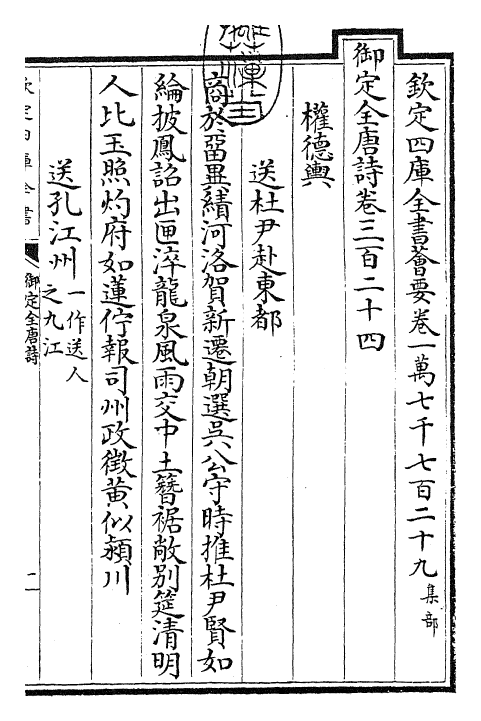 欽定四庫全書薈要卷一萬七千七百二十九 集部
御定全唐詩卷三百二十四
權德輿
送杜尹赴東都
商於留異績河洛賀新遷朝選吳公守時推杜尹賢如
綸披鳳詔出匣淬龍泉風雨交中土簪裾敞別筵清明
人比玉照灼府如蓮佇報司州政徵黃似潁川
送孔江州 一作送人之九江
欽定四庫全書
御定全唐詩